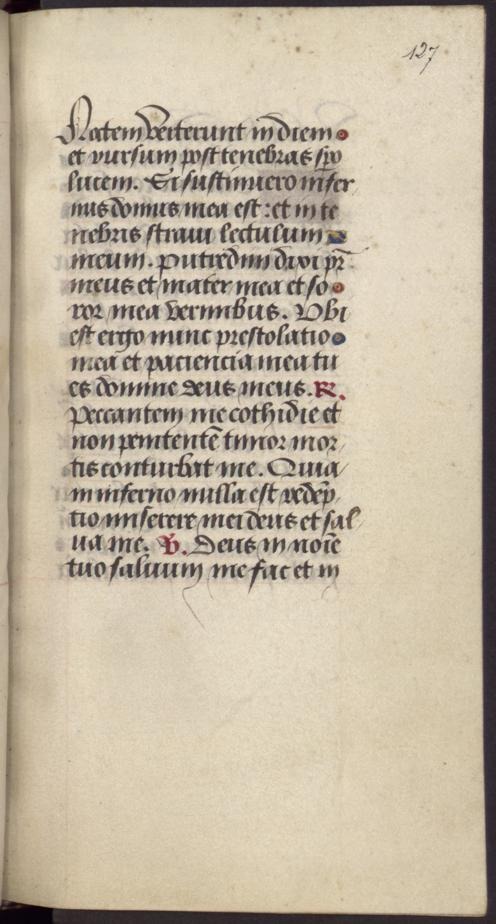 127
Noctem verterunt in diem
et rursum post tenebras spo
lucem. Si sustinuero infer
nus domus mea est: et in te
nebris stravi lectulum
meum. Putredini dixi pr̄
meus et mater mea et so
ror mea vermibus. Vbi
est ergo nunc prestolatio
mea et paciencia mea tu
es domine deus meus. R.
Peccantem me cothidie et
non penitentē timor mor
tis conturbat me. Quia
in inferno nulla est redēp
tio miserere mei deus et sal
va me. V. Deus in noīe
tuo salvum me fac et in